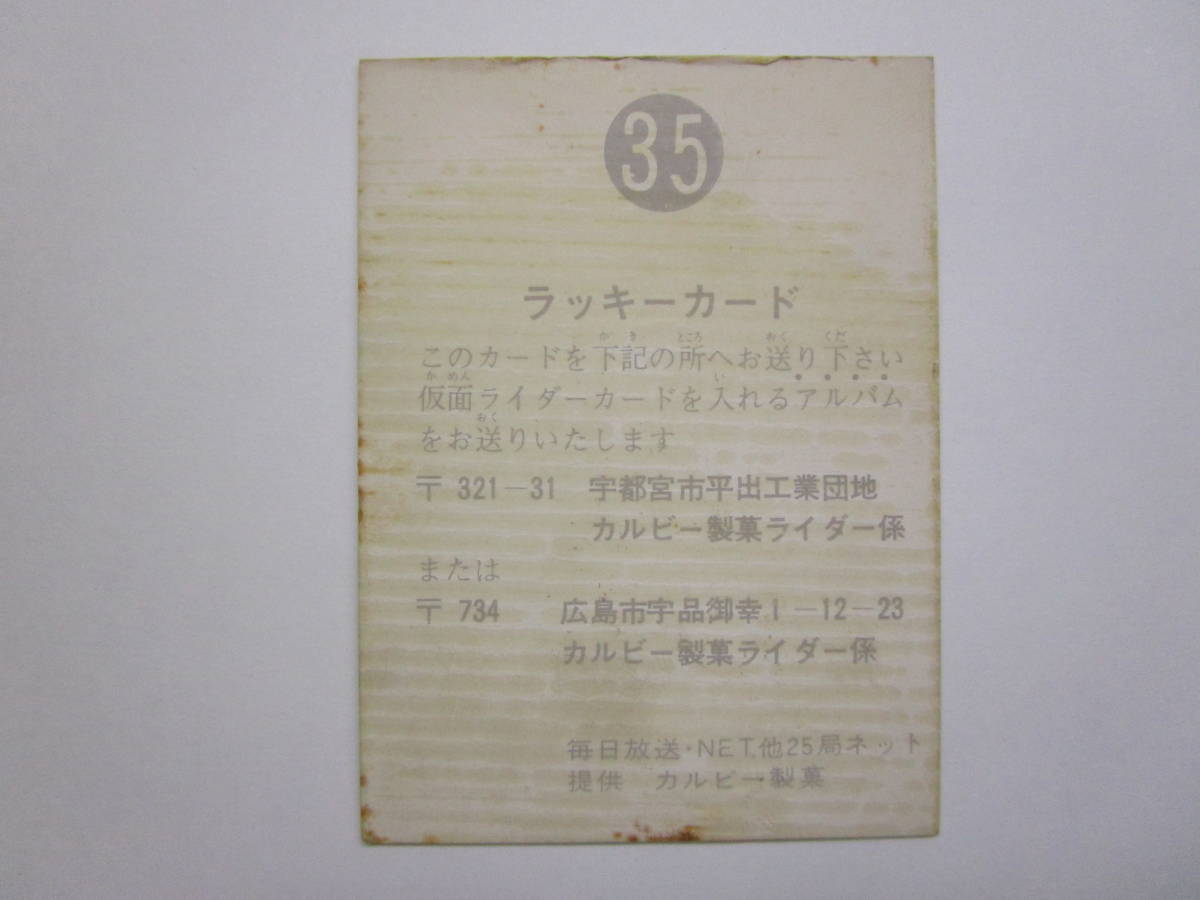 35
ラッキーカード
このカードを下記の所へお送り下さい
仮面ライダーカードを入れるアルバム
をお送りいたします
〒 321-31 宇都宮市平出工業団地
カルビー製菓ライダー係
または
〒 734 広島市宇品御幸1-12-23
カルビー製菓ライダー係
毎日放送・NET.他25局ネット
提供 カルビー製菓